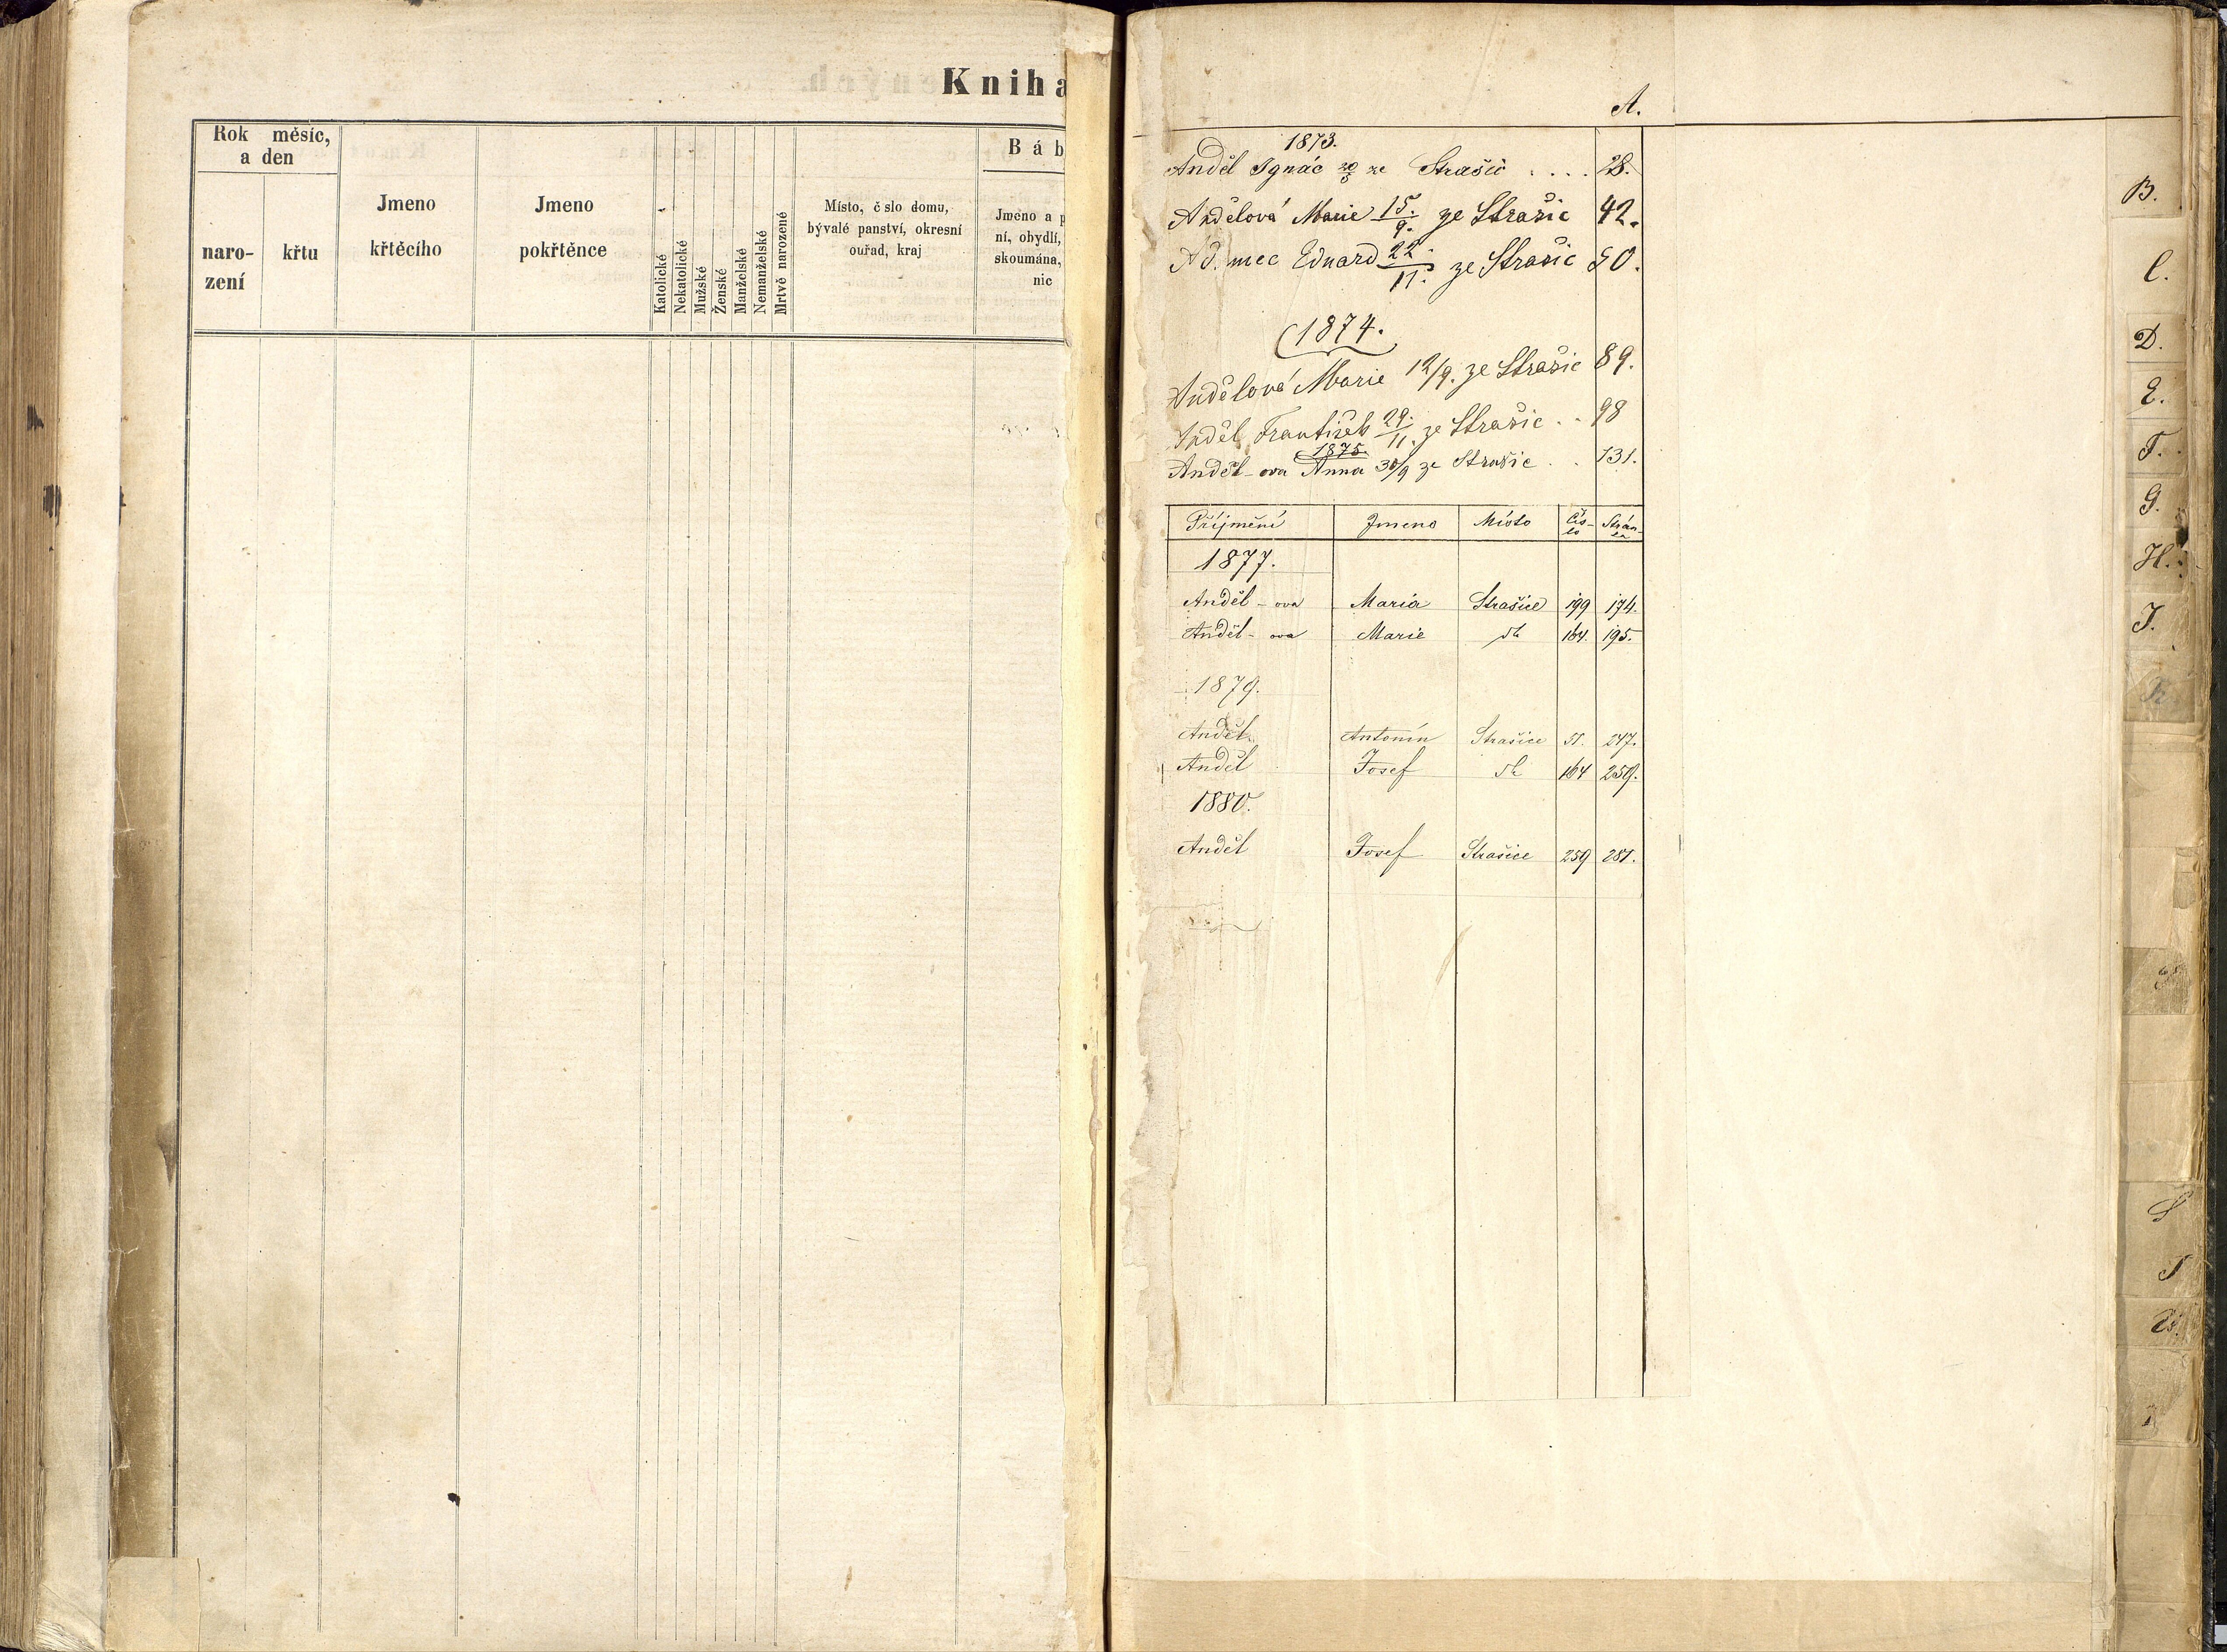 Kniha
Rok měsíc,
a den
naro-
zení
křtu
Jmeno
křtěcího
Jmeno
pokřtěnce
Katolické
Nekatolické
Mužské
Ženské
Manželské
Nemanželské
Mrtvě narozené
Místo, čslo domu,
bývalé panství, okresní
ouřad, kraj
Báb
Jmeno a p
ní, obydlí,
skoumána,
nic
A.
1873.
Anděl Ignác ze Strašic .... 28.
Andělová Marie 15./9. ze Strašic 42.
Ad. mec Eduard 22./11. ze Strašic 50.
1874.
Andělová Marie 12/9. ze Strašic 89.
Anděl František 29./11. ze Strašic .. 98
1875.
Anděl-ova Anna 30/9 ze Strašic .. 131.
Příjmění Jmeno Místo Čís-lo Strán-ka
1877.
Anděl-ova Maria Strašice 199 174.
Anděl-ova Marie 164. 195.
1879.
Anděl Antonín Strašice 51. 247.
Anděl Josef 164 259.
1880.
Anděl Josef Strašice 259 281.
B.
C.
D.
E.
F.
G.
H.
I.
K.
S